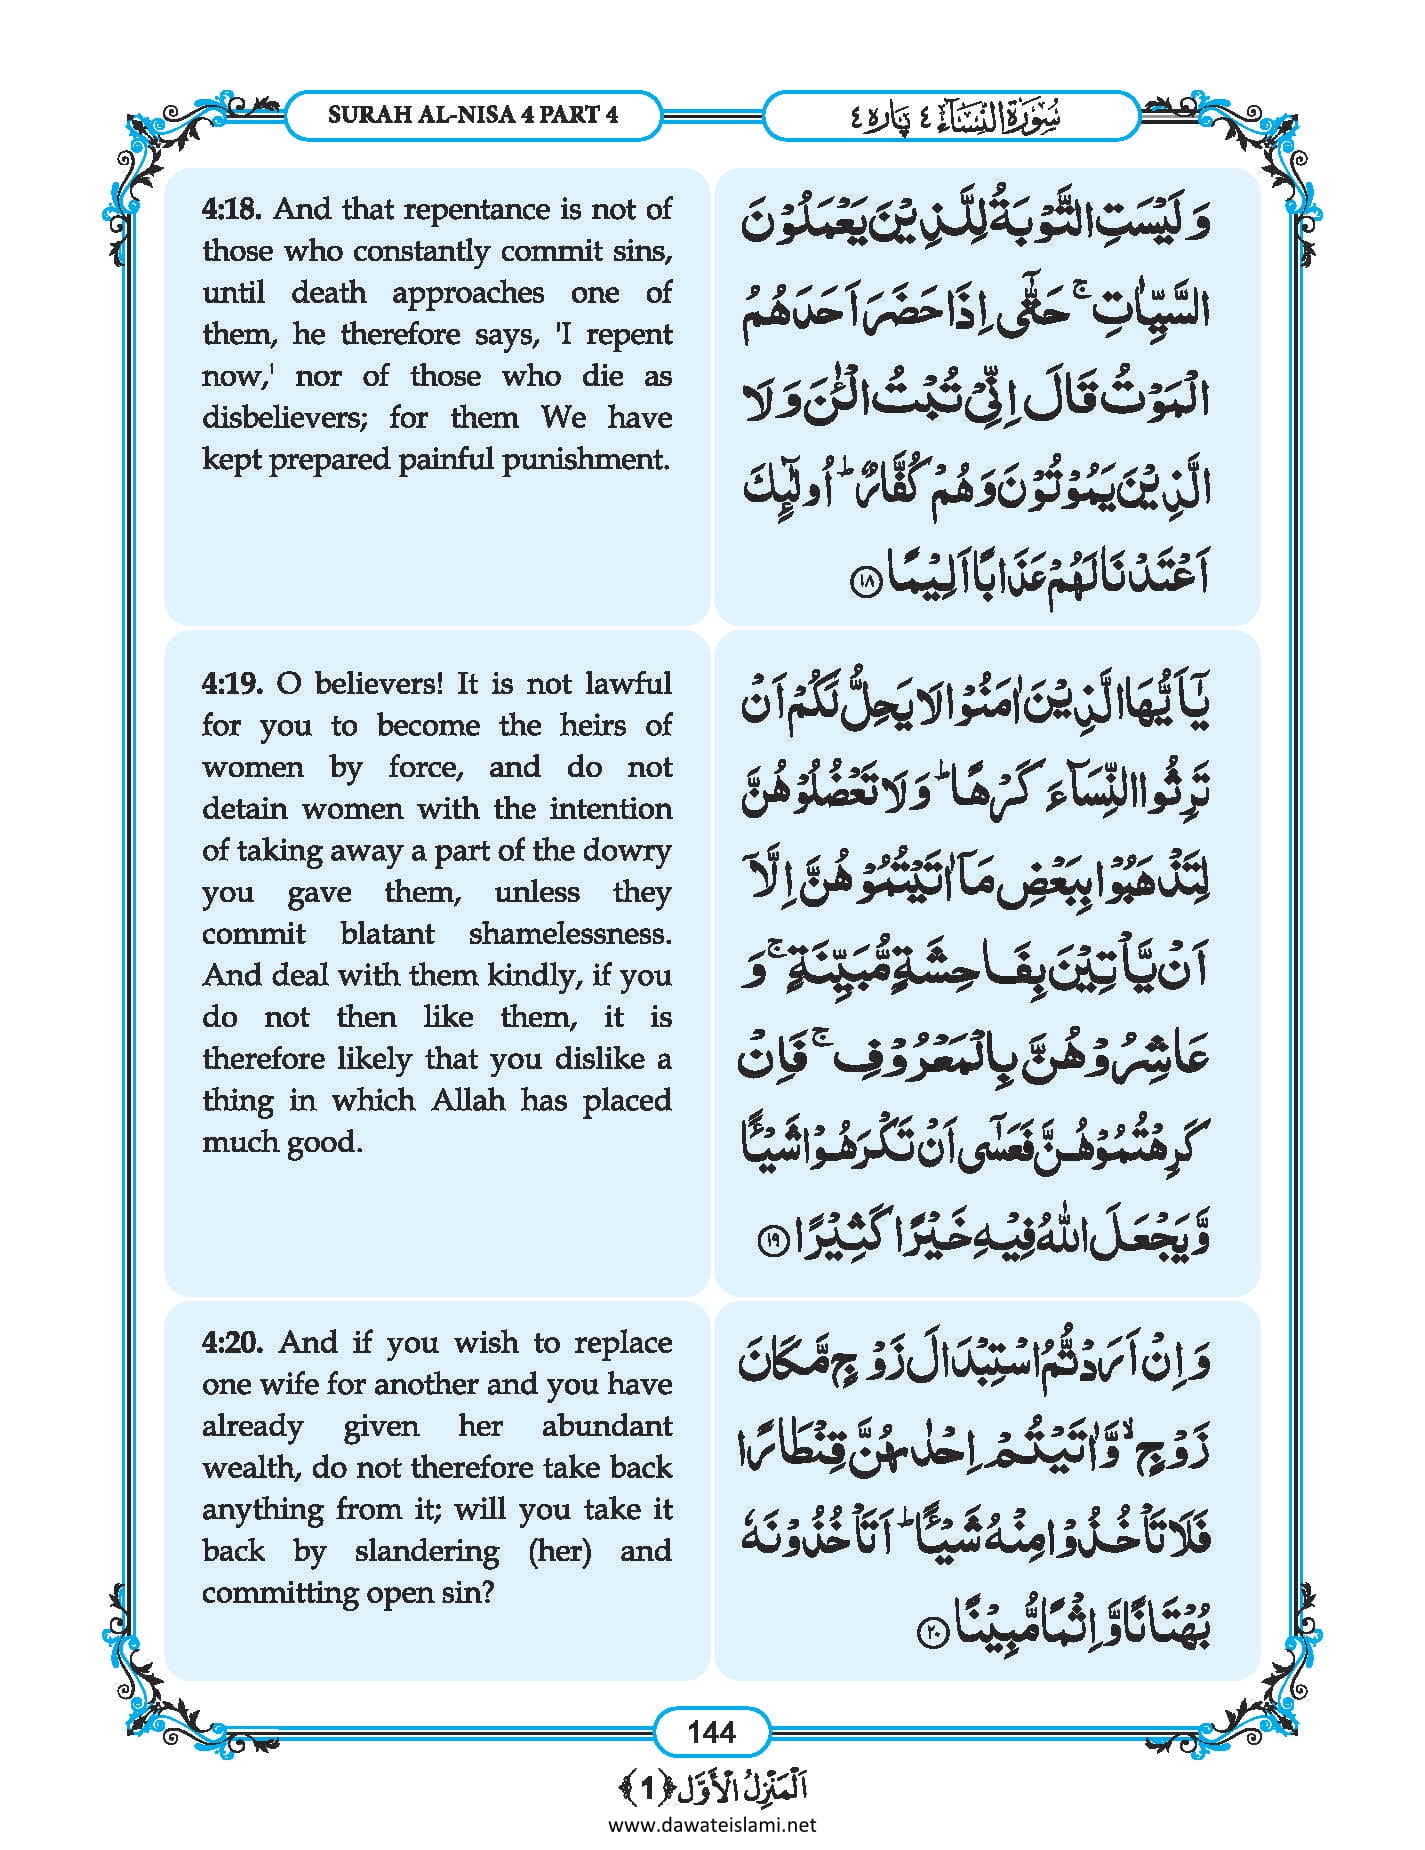 SURAH AL-NISA 4 PART 4
سُوْرَةُ النِّسَآء ٤ پَارہ ٤
4:18. And that repentance is not of
those who constantly commit sins,
until death approaches one of
them, he therefore says, 'I repent
now,' nor of those who die as
disbelievers; for them We have
kept prepared painful punishment.
وَ لَیْسَتِ التَّوْبَةُ لِلَّذِیْنَ یَعْمَلُوْنَ
السَّیِّاٰتِ ۚ حَتّٰۤی اِذَا حَضَرَ اَحَدَهُمُ
الْمَوْتُ قَالَ اِنِّیْ تُبْتُ الْـٰٔنَ وَ لَا
الَّذِیْنَ یَمُوْتُوْنَ وَ هُمْ كُفَّارٌ ؕ اُولٰٓىِٕكَ
اَعْتَدْنَا لَهُمْ عَذَابًا اَلِیْمًا ﴿۱۸﴾
4:19. O believers! It is not lawful
for you to become the heirs of
women by force, and do not
detain women with the intention
of taking away a part of the dowry
you gave them, unless they
commit blatant shamelessness.
And deal with them kindly, if you
do not then like them, it is
therefore likely that you dislike a
thing in which Allah has placed
much good.
یٰۤاَیُّهَا الَّذِیْنَ اٰمَنُوْا لَا یَحِلُّ لَكُمْ اَنْ
تَرِثُوا النِّسَآءَ كَرْهًا ؕ وَ لَا تَعْضُلُوْهُنَّ
لِتَذْهَبُوْا بِبَعْضِ مَاۤ اٰتَیْتُمُوْهُنَّ اِلَّاۤ
اَنْ یَّاْتِیْنَ بِفَاحِشَةٍ مُّبَیِّنَةٍ ۚ وَ
عَاشِرُوْهُنَّ بِالْمَعْرُوْفِ ۚ فَاِنْ
كَرِهْتُمُوْهُنَّ فَعَسٰۤی اَنْ تَكْرَهُوْا شَیْـًٔا
وَّ یَجْعَلَ اللّٰهُ فِیْهِ خَیْرًا كَثِیْرًا ﴿۱۹﴾
4:20. And if you wish to replace
one wife for another and you have
already given her abundant
wealth, do not therefore take back
anything from it; will you take it
back by slandering (her) and
committing open sin?
وَ اِنْ اَرَدْتُّمُ اسْتِبْدَالَ زَوْجٍ مَّكَانَ
زَوْجٍ ۙ وَّ اٰتَیْتُمْ اِحْدٰىهُنَّ قِنْطَارًا
فَلَا تَاْخُذُوْا مِنْهُ شَیْـًٔا ؕ اَتَاْخُذُوْنَهٗ
بُهْتَانًا وَّ اِثْمًا مُّبِیْنًا ﴿۲۰﴾
144
اَلْمَنْزِلُ الْاَوَّل ﴿1﴾
www.dawateislami.net